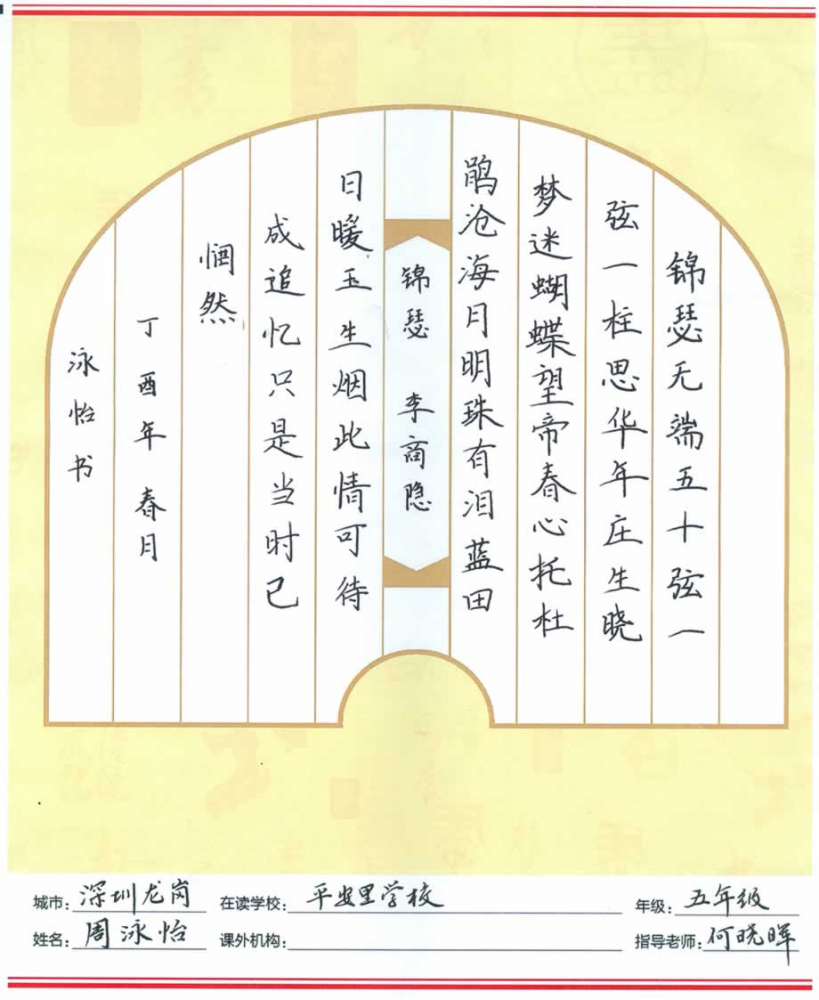 锦瑟无端五十弦一
弦一柱思华年庄生晓
梦迷蝴蝶望帝春心托杜
鹃沧海月明珠有泪蓝田
锦瑟 李商隐
日暖玉生烟此情可待
成追忆只是当时已
惘然
丁酉年春月
泳怡书
城市：深圳龙岗 在读学校：平安里学校 年级：五年级
姓名：周泳怡 课外机构： 指导老师：何晓晖